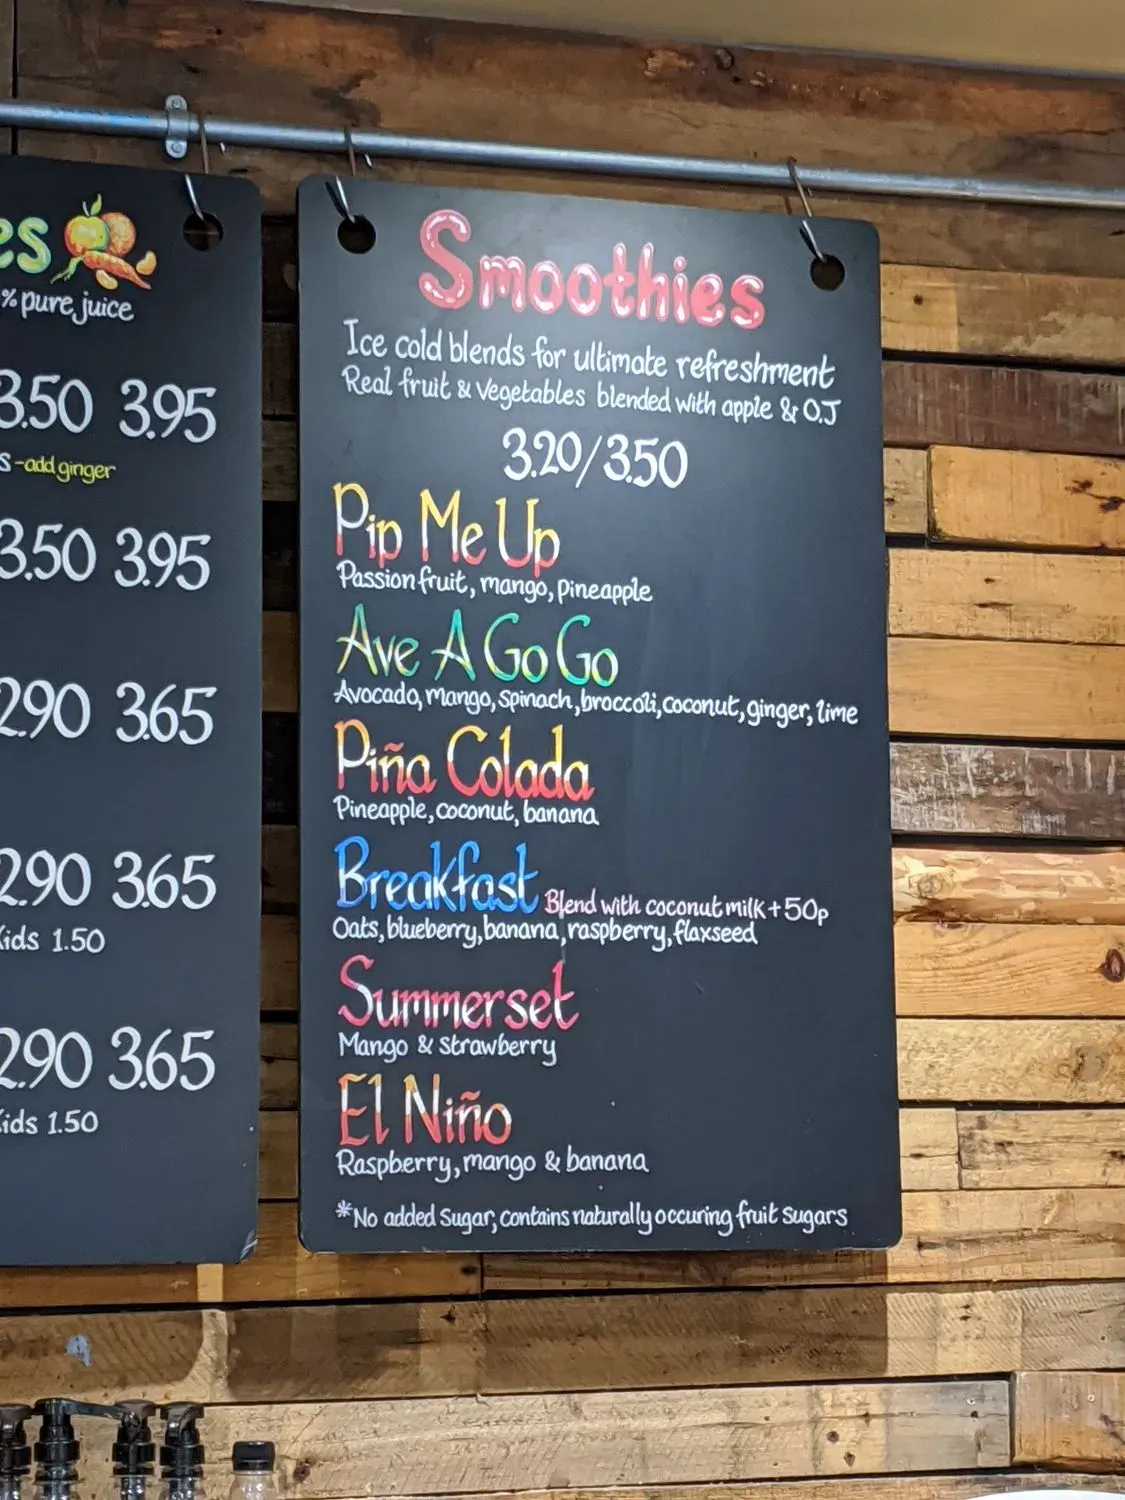 es
% pure juice
3.50 3.95
s -add ginger
3.50 3.95
2.90 3.65
2.90 3.65
Kids 1.50
2.90 3.65
Kids 1.50
Smoothies
Ice cold blends for ultimate refreshment
Real fruit & vegetables blended with apple & O.J
3.20/3.50
Pip Me Up
Passion fruit, mango, pineapple
Ave A Go Go
Avocado, mango, spinach, broccoli, coconut, ginger, lime
Piña Colada
Pineapple, coconut, banana
Breakfast Blend with coconut milk +50p
Oats, blueberry, banana, raspberry, flaxseed
Summerset
Mango & strawberry
El Niño
Raspberry, mango & banana
*No added sugar, contains naturally occuring fruit sugars